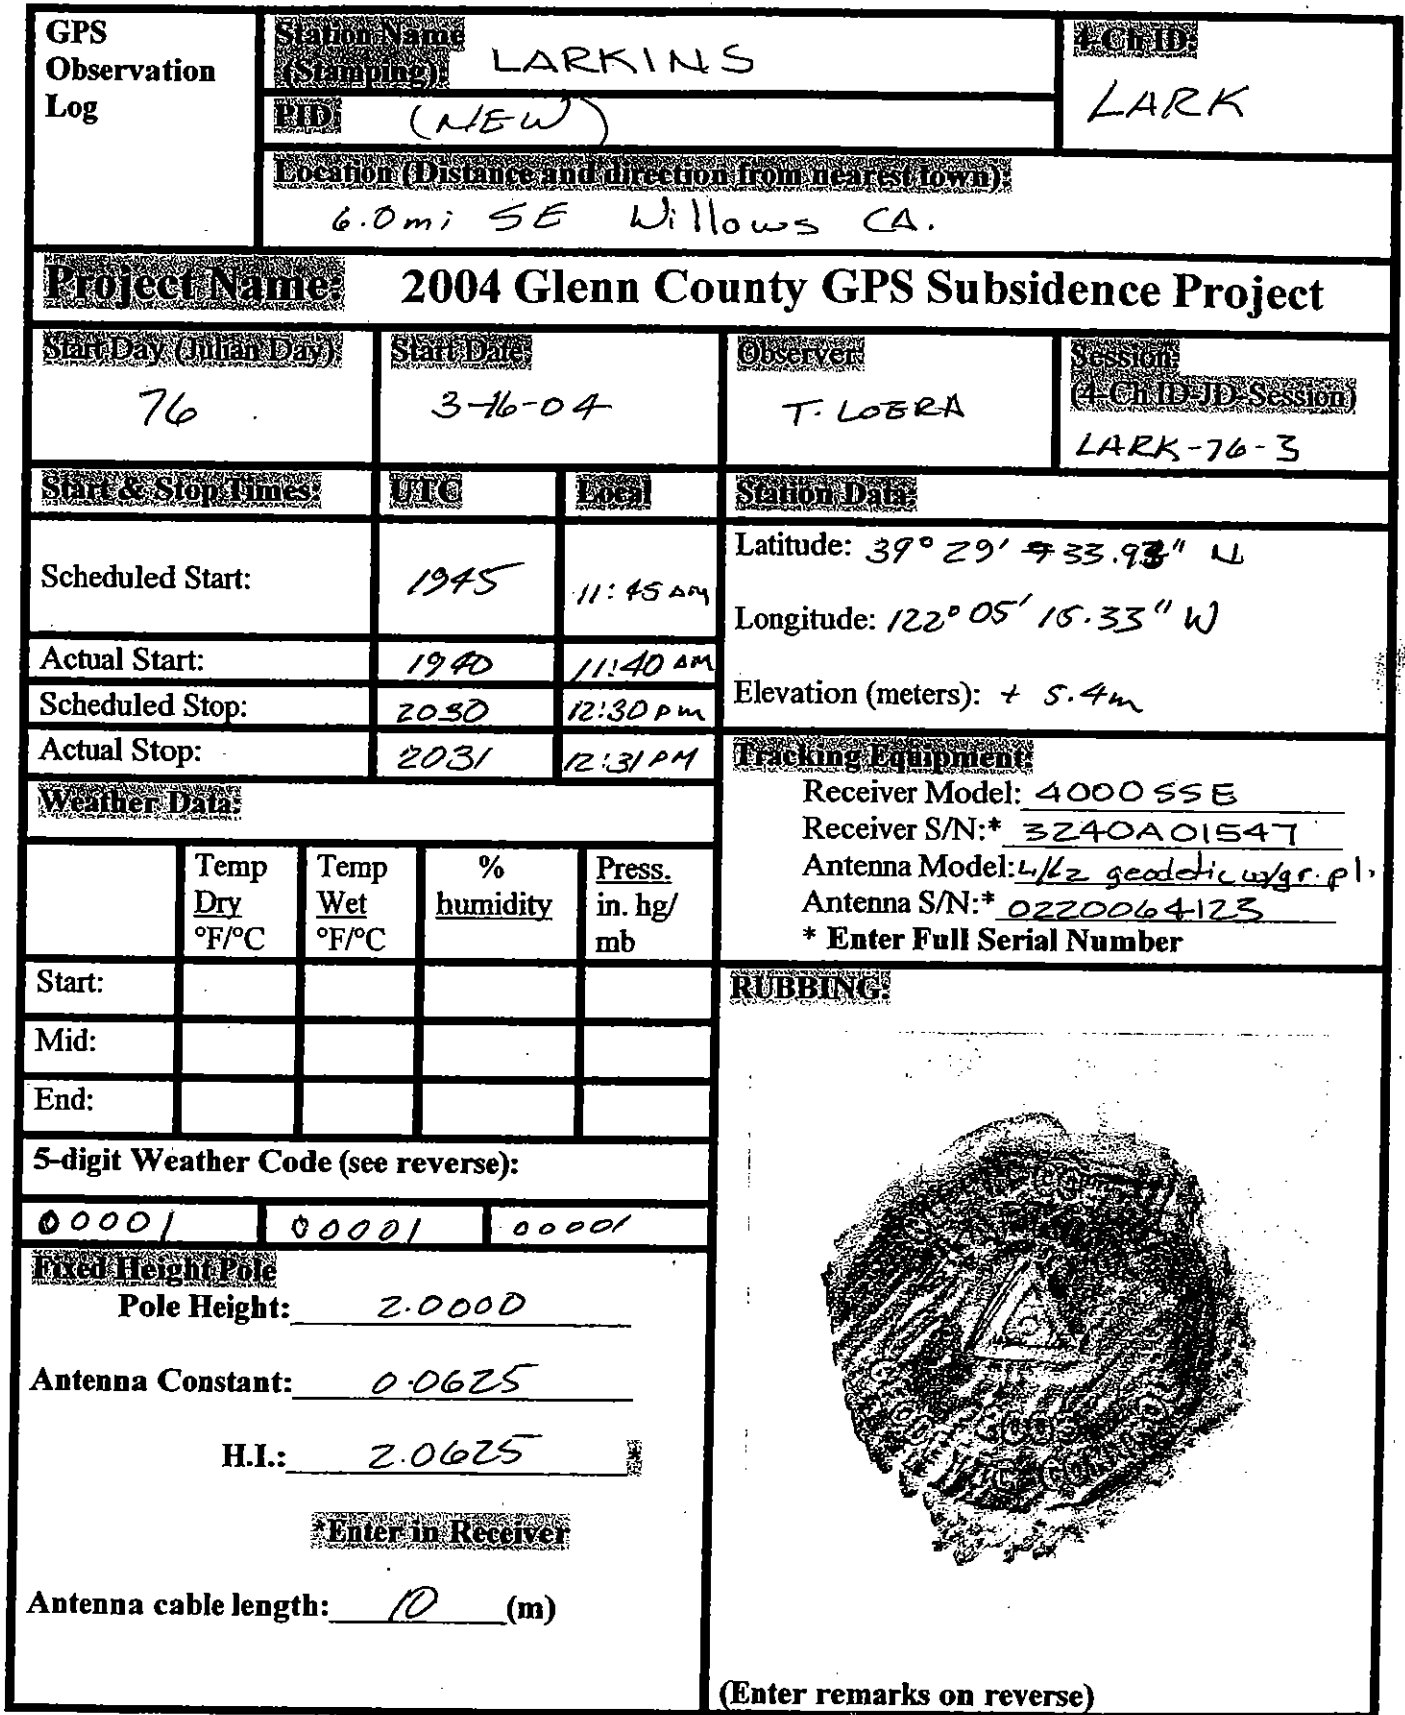 GPS
Observation
Log
Station Name
(Stamping): LARKINS
4-Ch ID:
LARK
PID: (NEW)
Location (Distance and direction from nearest town):
6.0mi SE Willows CA.
Project Name: 2004 Glenn County GPS Subsidence Project
Start Day (Julian Day)
76
Start Date:
3-16-04
Observer:
T. LOERA
Session:
(4-Ch ID-JD-Session)
LARK-76-3
Start & Stop Times: UTC Local
Scheduled Start: 1945 11:45 AM
Actual Start: 1940 11:40 AM
Scheduled Stop: 2030 12:30 pm
Actual Stop: 2031 12:31 PM
Station Data:
Latitude: 39° 29' 33.93" N
Longitude: 122° 05' 15.33" W
Elevation (meters): + 5.4m
Weather Data:
Temp Dry °F/°C
Temp Wet °F/°C
% humidity
Press. in. hg/ mb
Start:
Mid:
End:
Tracking Equipment:
Receiver Model: 4000 SSE
Receiver S/N:* 3240A01547
Antenna Model: L1/L2 geodetic w/gr. pl.
Antenna S/N:* 0220064123
* Enter Full Serial Number
5-digit Weather Code (see reverse):
00001 00001 00001
Fixed Height Pole
Pole Height: 2.0000
Antenna Constant: 0.0625
H.I.: 2.0625 *
*Enter in Receiver
Antenna cable length: 10 (m)
RUBBING:
(Enter remarks on reverse)